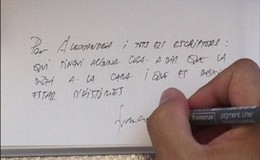 Per Alexandra i tots els escriptors:
qui tingui alguna cosa a dir que la
digui a la cara i que es deixi
estar d'històries
pigment liner